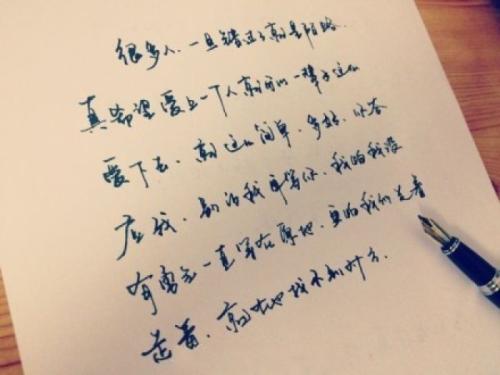 很多人，一旦错过了就是陌路。
真希望爱上一个人就可以一辈子这么
爱下去，就这么简单，多好。你答
应我，别让我再等你，我怕我没
有勇气一直等在原地，更怕我们走着
走着，就在也找不到对方。